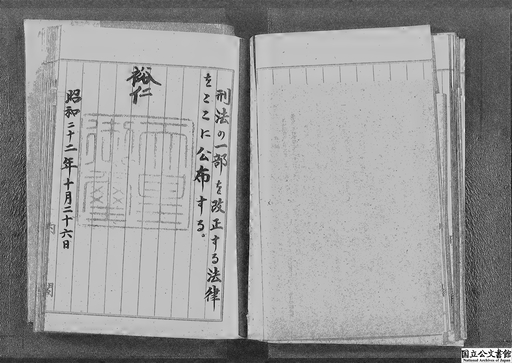 刑法の一部を改正する法律
をここに公布する。
裕仁
天皇御璽
昭和二十二年十月二十六日
内閣
国立公文書館
National Archives of Japan